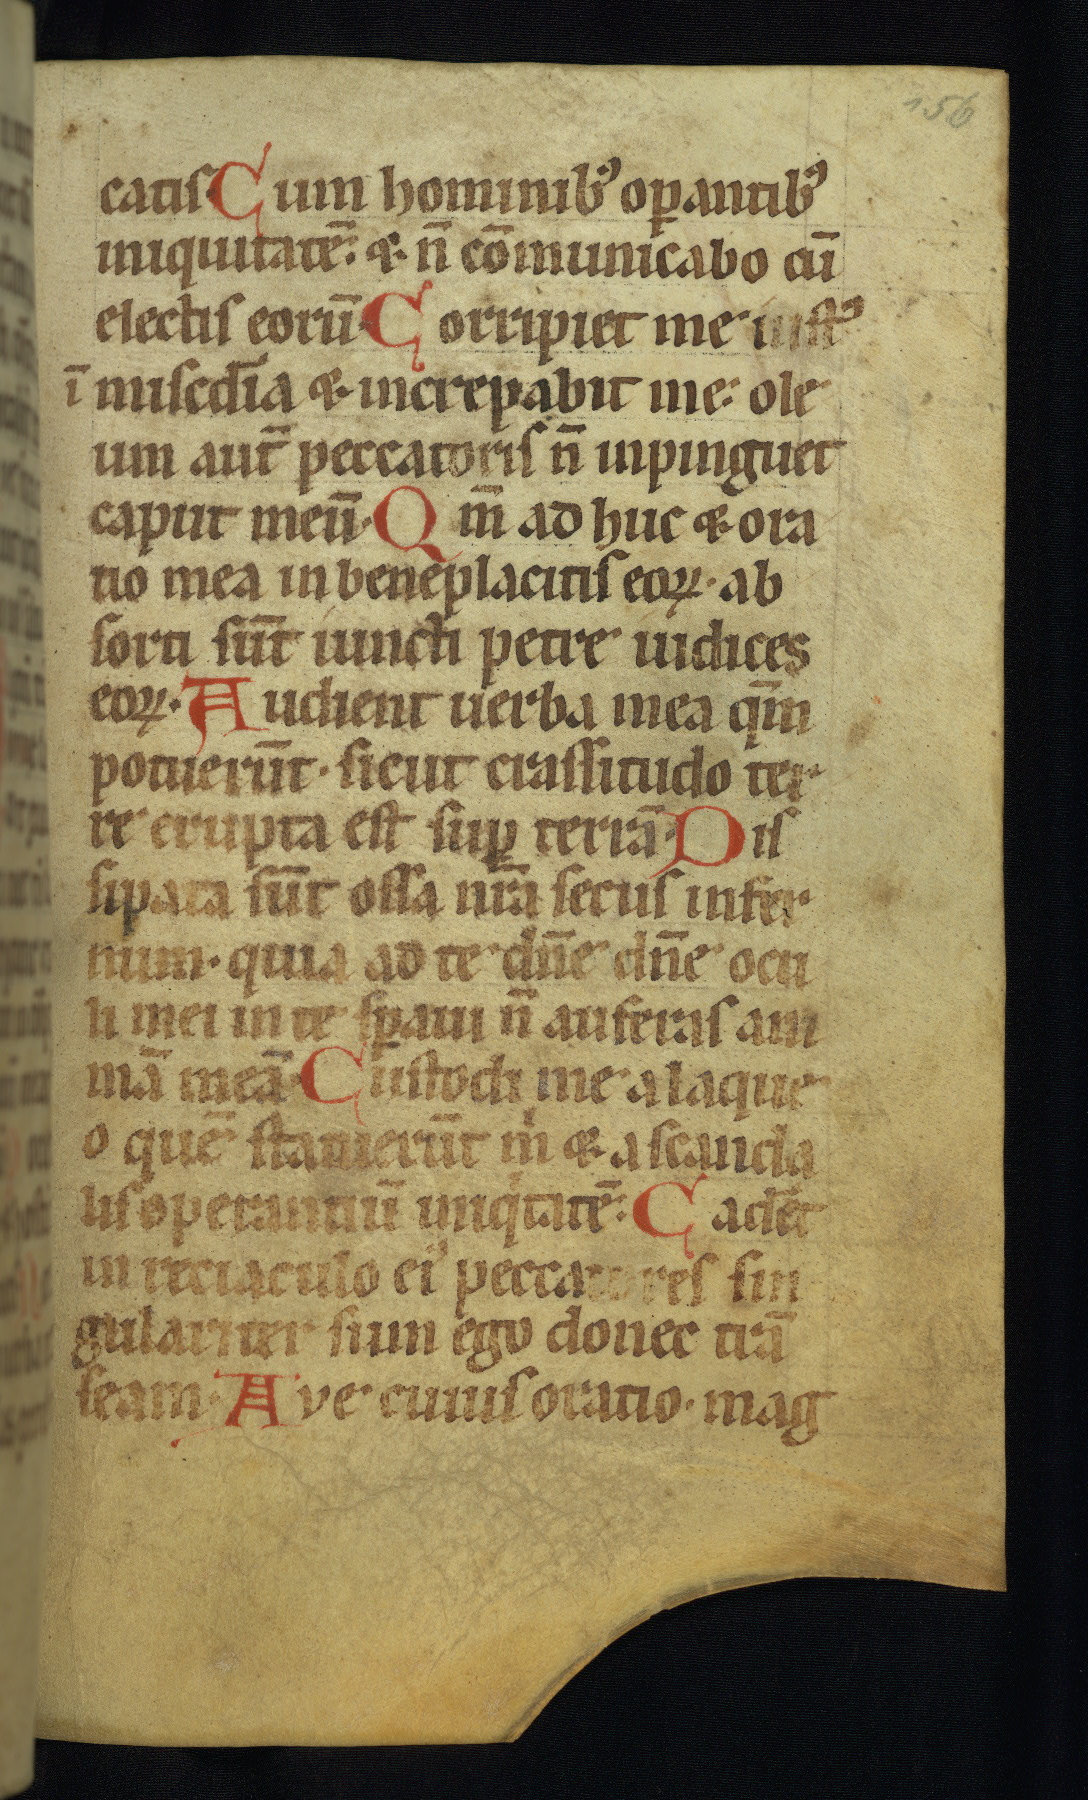 156
catis Cum hominibꝰ oꝑantibꝰ
iniquitatē: & n̄ cōmunicabo cū
electis eorū. Corripiet me iustꝰ
ī miscd̄ia & increpabit me: ole
um aut̄ peccatoris n̄ inpinguet
caput meū. Qm̄ ad huc & ora
tio mea in beneplacitis eoꝝ. ab
sorti sūt iuncti petre iudices
eoꝝ. Audient uerba mea qm̄
potuerūt. sicut crassitudo ter
re erupta est suꝑ terrā. Dis
sipata sūt ossa nr̄a secus infer
num. quia ad te dn̄e dn̄e ocu
li mei in te sꝑaui n̄ auferas ani
mā meā. Custodi me a laque
o quē statuerūt m̄ & a scanda
lis operantiū iniqͥtatē: Cadēt
in reciaculo eiꝰ peccatores sin
gulariter sum ego donec trā
seam. Ave cuius oratio. mag